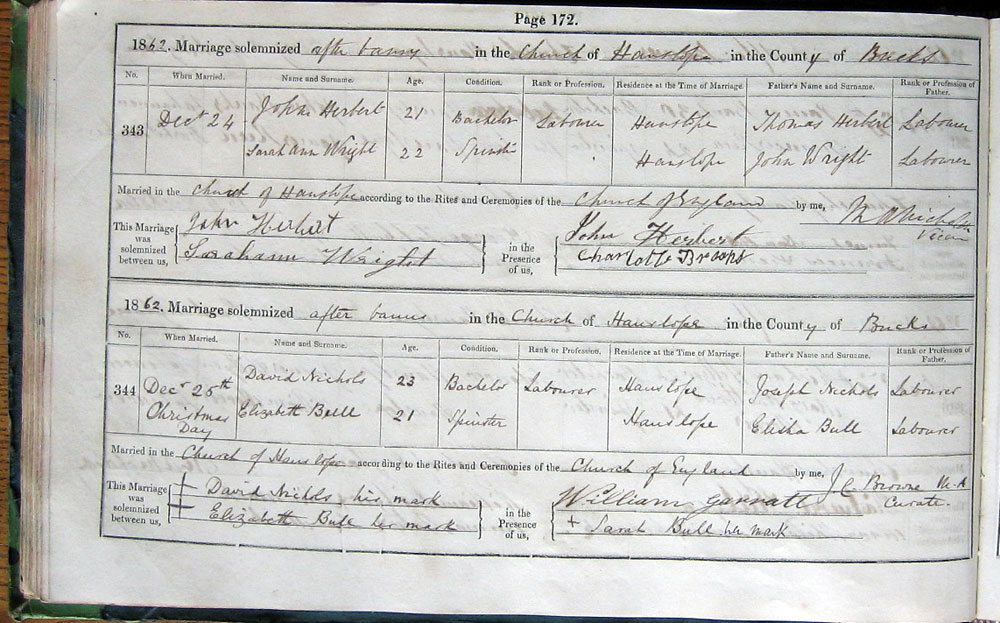 Page 172.
1862. Marriage solemnized after banns in the Church of Hanslope in the County of Bucks
No. When Married. Name and Surname. Age. Condition. Rank or Profession. Residence at the Time of Marriage. Father's Name and Surname. Rank or Profession of Father.
343 Decr 24 John Herbert 21 Bachelor Labourer Hanslope Thomas Herbert Labourer
Sarah Ann Wright 22 Spinster Hanslope John Wright Labourer
Married in the Church of Hanslope according to the Rites and Ceremonies of the Church of England by me, M A Nicholson
Vicar
This Marriage was solemnized between us, John Herbert in the Presence of us, John Herbert
Sarahann Wright Charlotte
1862. Marriage solemnized after banns in the Church of Hanslope in the County of Bucks
No. When Married. Name and Surname. Age. Condition. Rank or Profession. Residence at the Time of Marriage. Father's Name and Surname. Rank or Profession of Father.
344 Decr 25th David Nichols 23 Bachelor Labourer Hanslope Joseph Nichols Labourer
Christmas Day Elizabeth Bull 21 Spinster Hanslope Elisha Bull Labourer
Married in the Church of Hanslope according to the Rites and Ceremonies of the Church of England by me, J C Browne M.A
Curate.
This Marriage was solemnized between us, + David Nichols his mark in the Presence of us, William Garratt
+ Elizabeth Bull her mark + Sarah Bull her mark